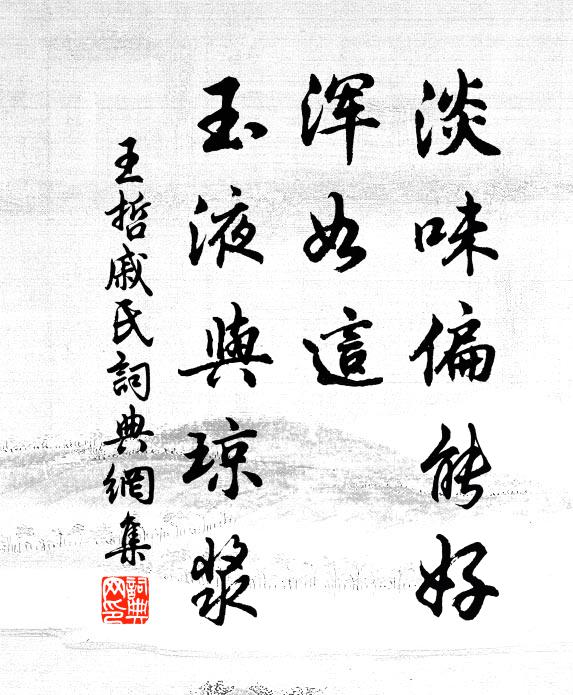 淡味偏能好
渾如這
玉液與琼漿
王哲戚氏詞典網集
詞典網印